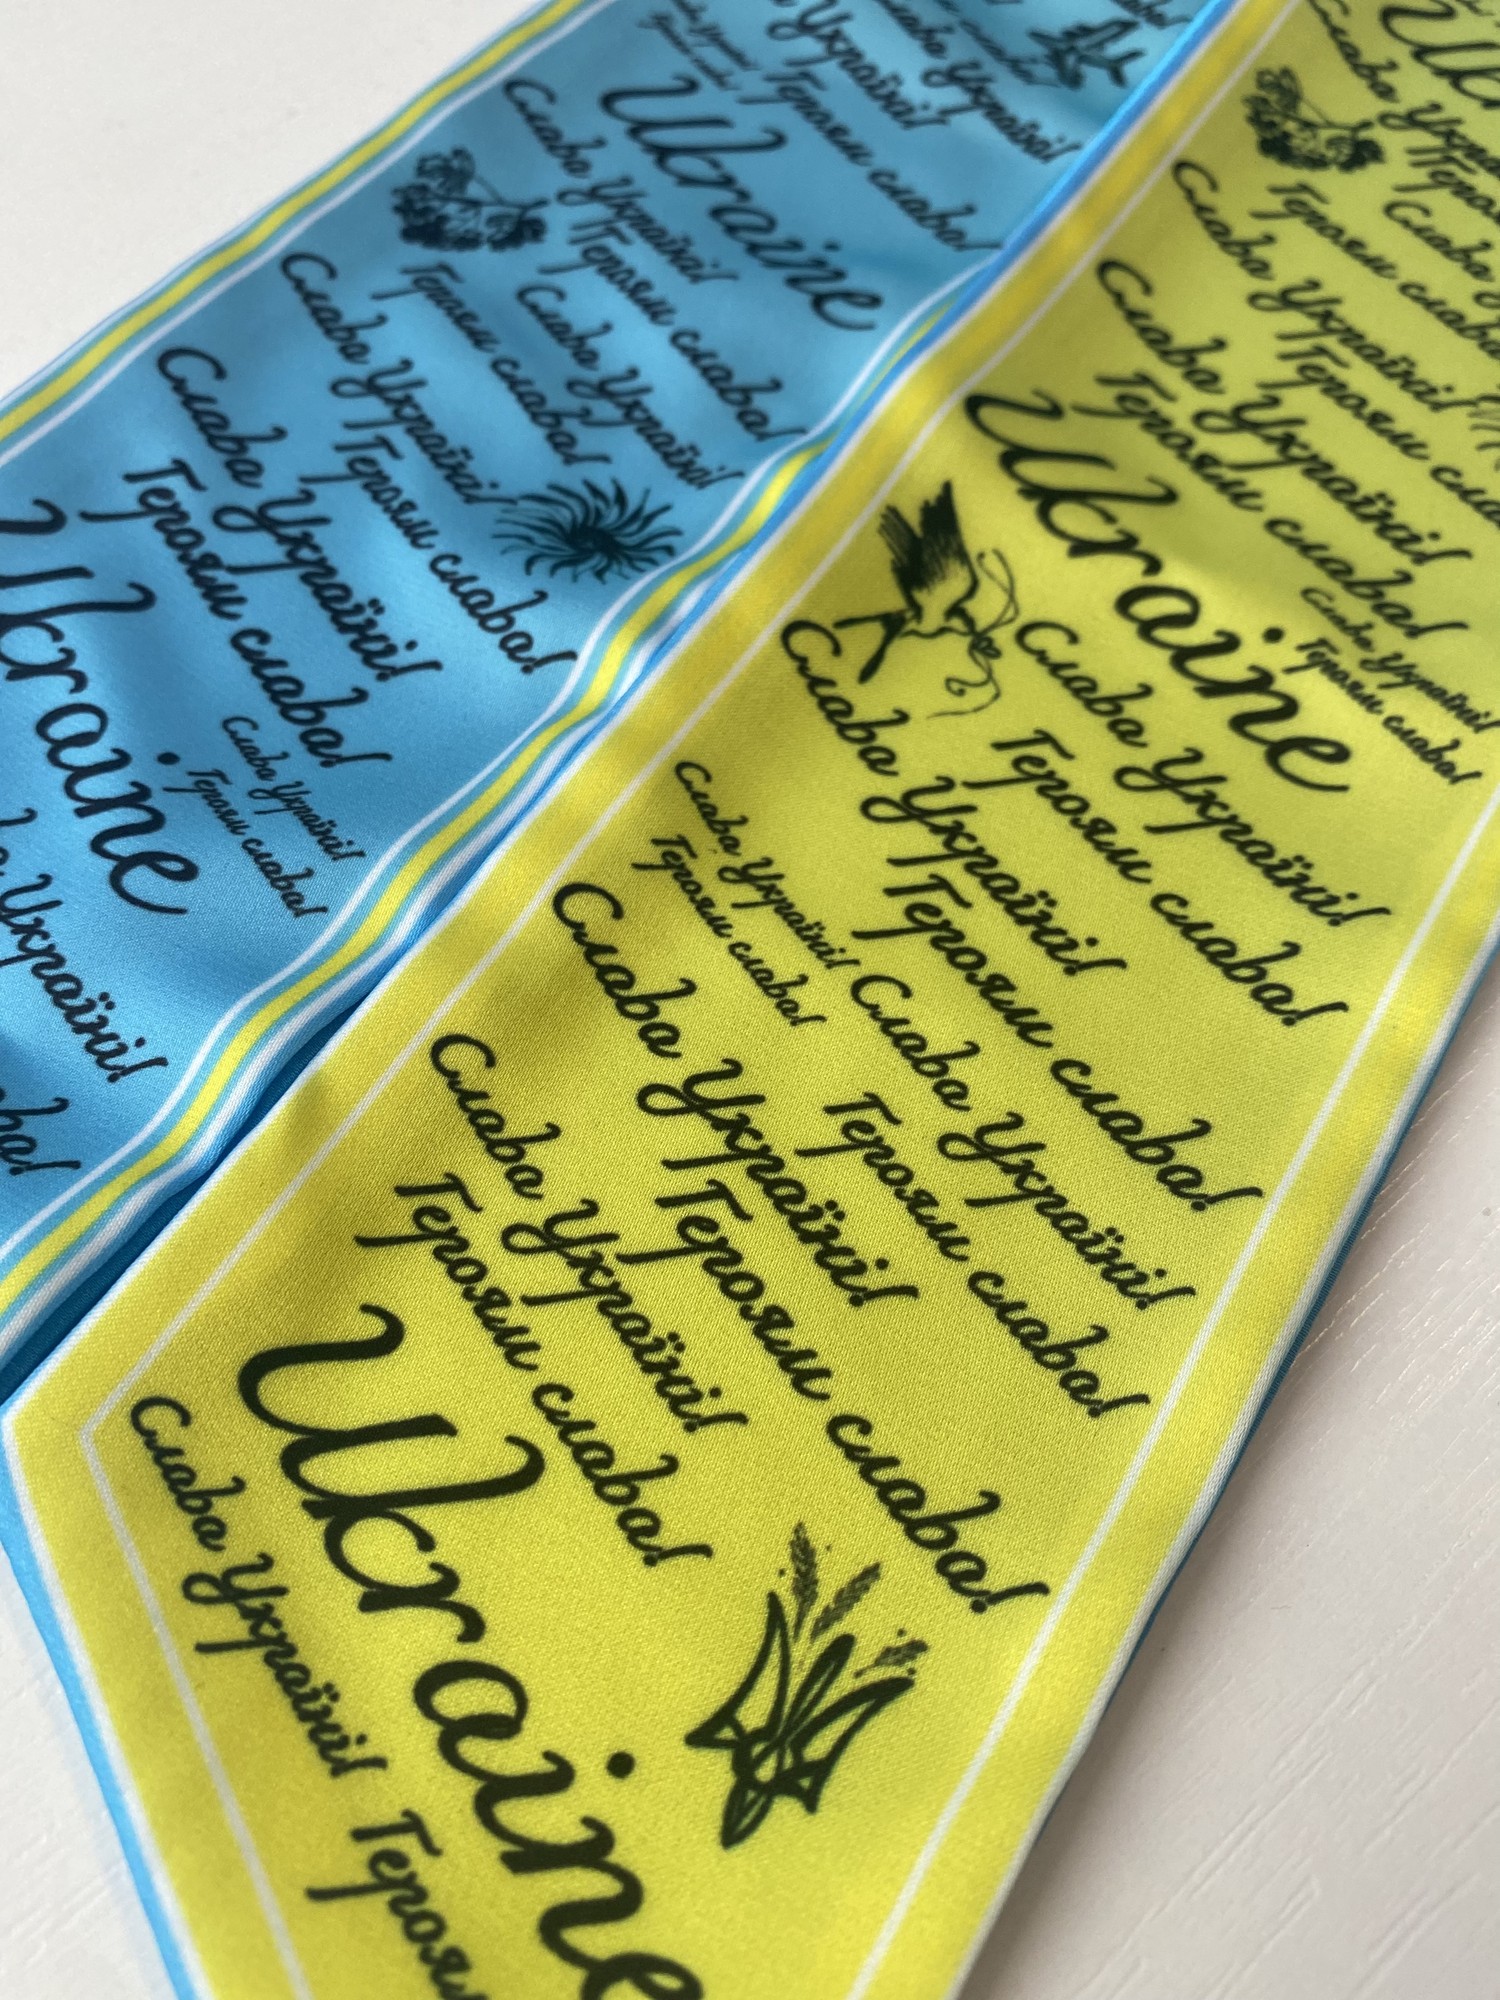 Слава Україні!
Героям слава!
Слава Україні!
Героям слава!
Ukraine
Слава Україні!
Героям слава!
Слава Україні!
Героям слава!
Слава Україні!
Героям слава!
Слава Україні!
Героям слава!
Ukraine
Слава Україні!
Героям слава!
Україні!
Слава
Героям
Слава
Слава Україні!
Героям
Слава Україні!
Героям слава!
Ukraine
Слава Україні!
Героям слава!
Слава Україні!
Героям слава!
Слава Україні!
Героям слава!
Слава Україні!
Героям слава!
Слава Україні!
Героям слава!
Слава Україні!
Героям слава!
Слава Україні!
Героям слава!
Ukraine
Слава Україні!